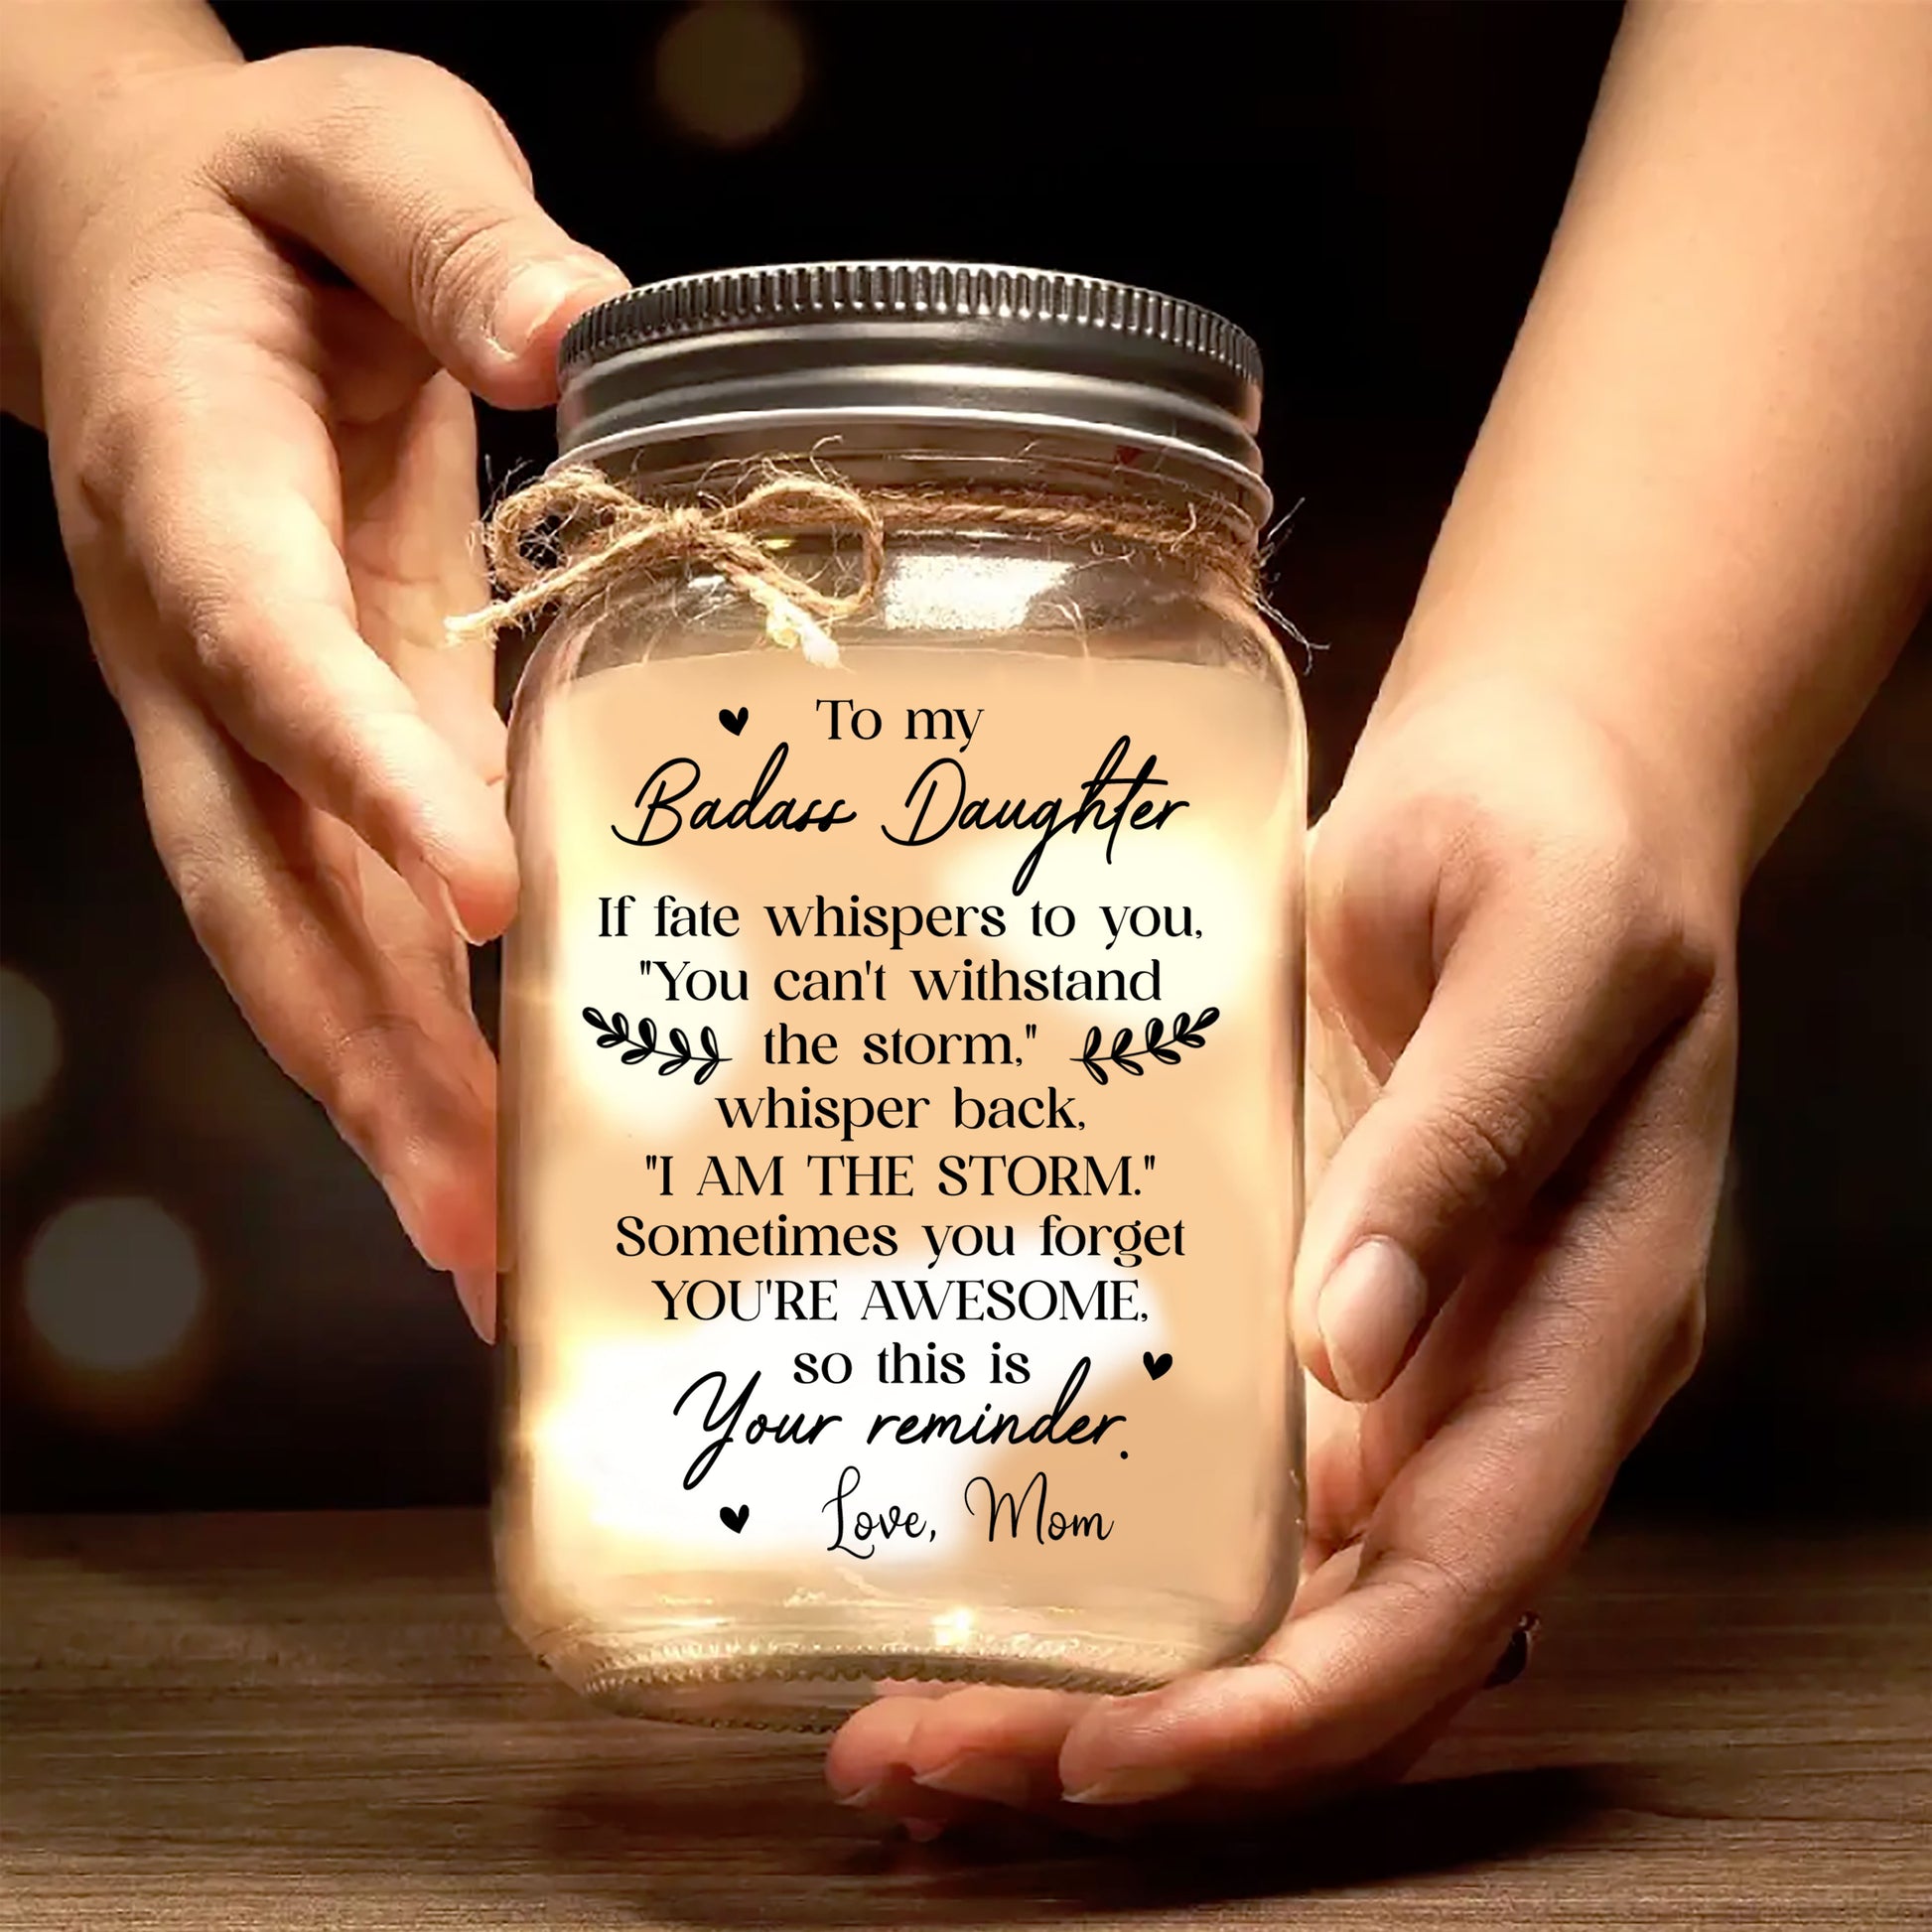 To my
Badass Daughter
If fate whispers to you,
"You can't withstand
the storm,"
whisper back,
"I AM THE STORM."
Sometimes you forget
YOU'RE AWESOME,
so this is
Your reminder.
Love, Mom